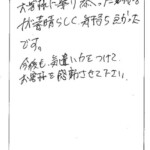 お客様に寄り添った
が素晴らしく気持ち良かった
です。
今後も気遣い力をつけて
お客様を感動させて下さい